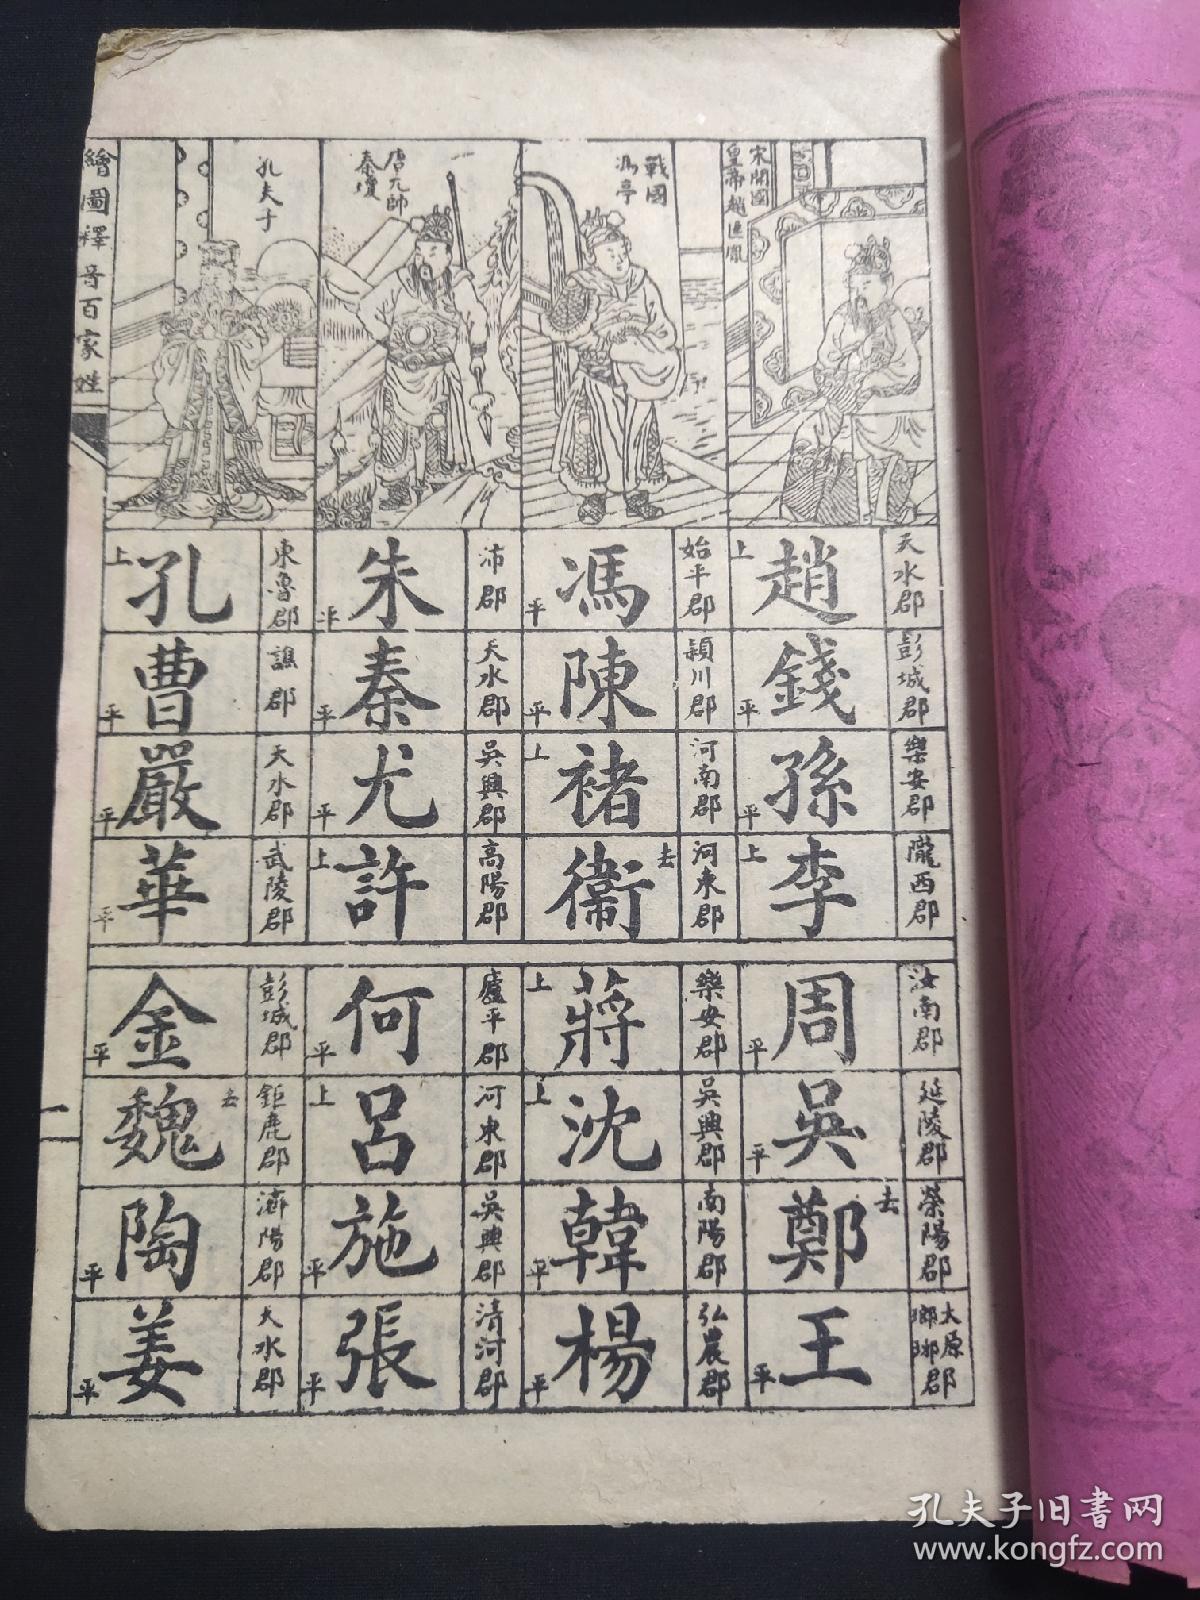 繪圖釋音百家姓
宋開國
皇帝趙匡胤
戰國
馮亭
唐元帥
秦瓊
孔夫子
趙 上 天水郡
錢 平 彭城郡
孫 平 樂安郡
李 上 隴西郡
馮 平 始平郡
陳 平 穎川郡
褚 上 河南郡
衛 去 河東郡
朱 平 沛郡
秦 平 天水郡
尤 平 吳興郡
許 上 高陽郡
孔 上 東魯郡
曹 平 譙郡
嚴 平 天水郡
華 平 武陵郡
周 平 汝南郡
吳 平 延陵郡
鄭 去 滎陽郡
王 平 太原郡 瑯琊
蔣 上 樂安郡
沈 上 吳興郡
韓 平 南陽郡
楊 平 弘農郡
何 平 廬平郡
呂 上 河東郡
施 平 吳興郡
張 平 清河郡
金 平 彭城郡
魏 去 鉅鹿郡
陶 平 濟陽郡
姜 平 天水郡
二
孔夫子旧書网
www.kongfz.com